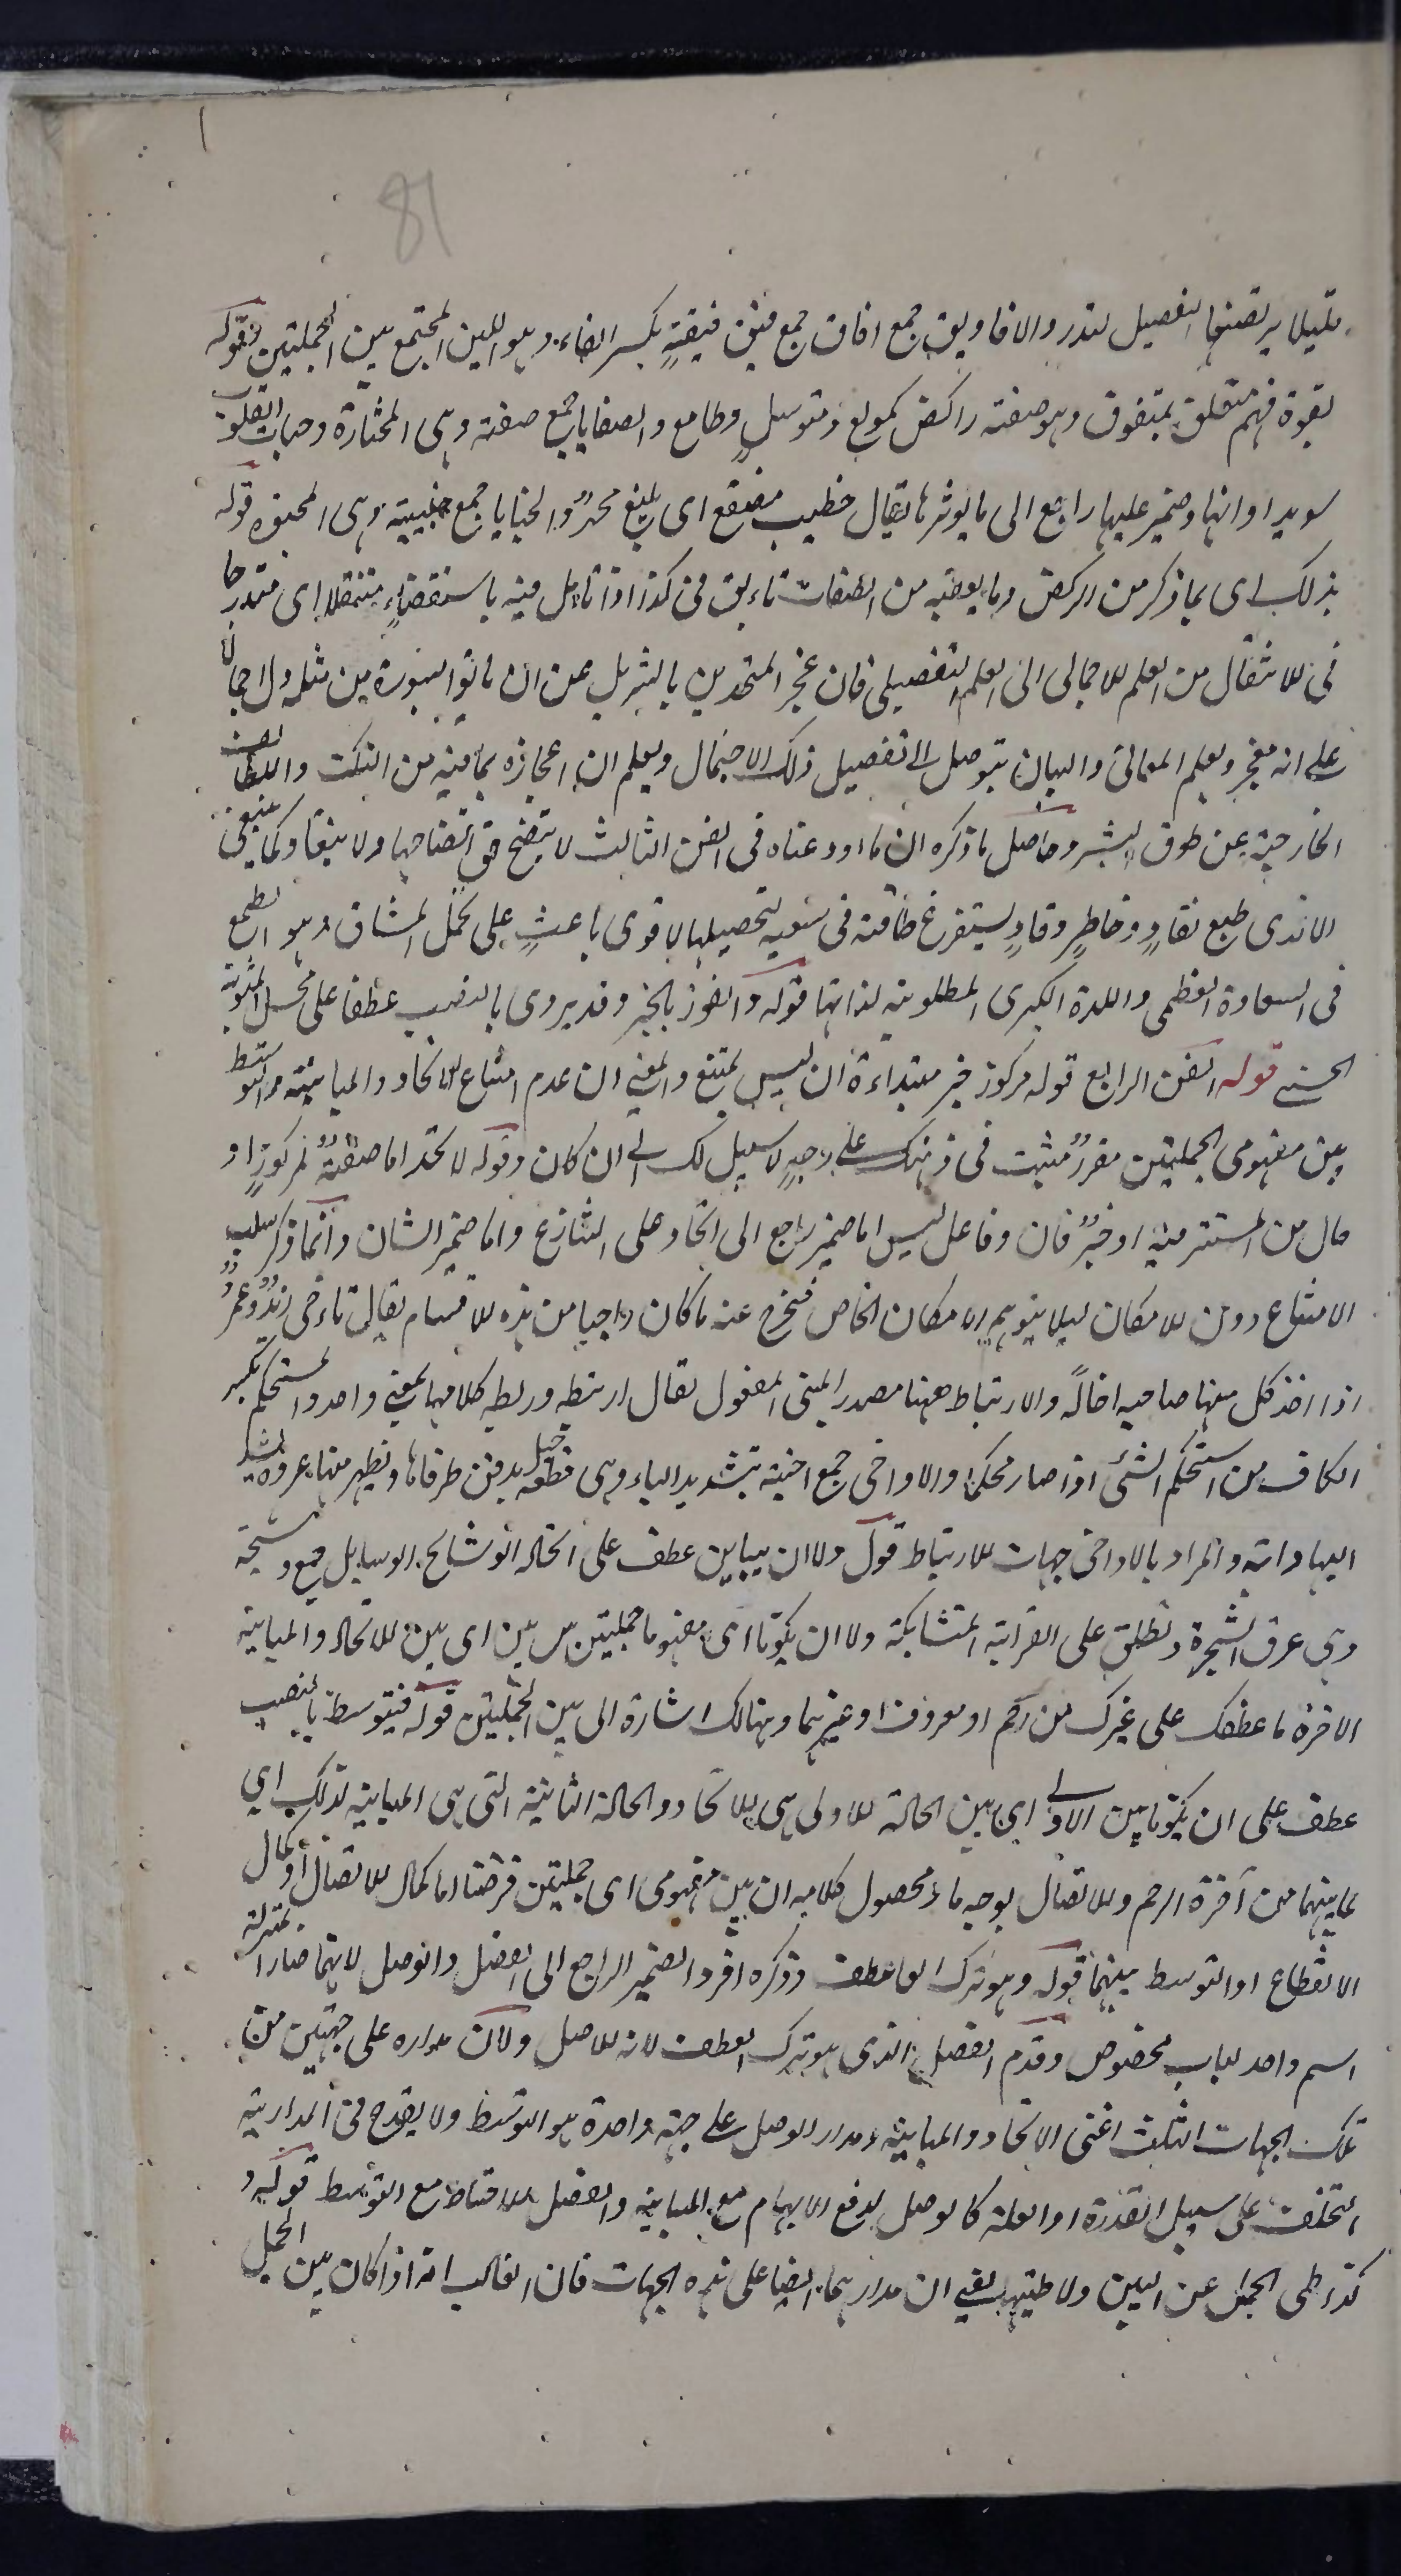 81
قليلا يرتضعها الفصيل لتدر والافاويق جمع افاق جمع فيق فيقةٍ بكسر الفاء وهو اللبن المجتمع بين الحلبتين قوله
بقوة فهم متعلق بمتفوق وهو صفته راكض كمولع ومتوسل وطامع والصفايا جمع صفية وهى المختارة وحبات القلوب
سويداواتها وضمير عليها راجع الى ما يوثرها يقال خطيب مصقع اى بليغ مجهرٌ والخبايا جمع خبيئة وهى المخبوة قوله
بذلك اى بما ذكر من الركض وما يعقبه من الصفات تانق فى كذا اذا تامل فيه باستقصاءٍ متنقلا اى متدرجا
فى الانتقال من العلم الاجمالى الى العلم التفصيلى فان عجز المتحدين بالتنزيل عن ان ياتوا بسورة من مثله دل اجمالا
على انه معجز وبعلم المعانى والبيان يتوصل الى تفصيل ذلك الاجمال ويعلم ان اعجازه بما فيه من النكت واللطائف
الخارجة عن طوق البشر وحاصل ما ذكره ان ما اودعناه فى الفن الثالث لا يتضح حق اتضاحها ولا ينقاد كما ينبغى
الا لذى طبع نقادٍ وخاطرٍ وقادٍ يستفرغ طاقته فى سعيه لتحصيلها لاقوى باعثٍ على تحمل المشاق وهو الطمع
فى السعادة العظمى واللذة الكبرى المطلوبة لذاتها قوله والفوز بالخير وقد يروى بالنصب عطفا على محل المثوبة
الحسنى قوله الفن الرابع قوله مركوز خبر مبتداءه ان ليس يمتنع والمعنى ان عدم امتناع الاتحاد والمباينة والتوسط
بين مفهومى الجملتين مقررٌ مثبت فى ذهنك على وجهٍ لا سبيل لك الى ان كان وقوله لا تجد اما صفةٌ لمركوزٍ او
حال من المستتر فيه او خبرٌ ثان وفاعل ليس اما ضمير راجع الى اتحاد على التنازع واما ضمير الشان وانما ذكر سلب
الامتناع دون الامكان ليلا يتوهم الامكان الخاص فيخرج عنه ما كان واجبا من هذه الاقسام يقال تاءخى زيدٌ وعمرٌو
اذا اخذ كل منهما صاحبه اخالًه والارتباط ههنا مصدر المبنى للمفعول يقال ارتبطه وربطه كلاهما بمعنى واحد والمستحكم بكسر
الكاف من استحكم الشئ اذا صار محكما والاواخى جمع اخية بتشديد الياء وهى قطعة حبل يدفن طرفاها ويظهر منها عروة يشد
اليها الدابة والمراد بالاواخى جهات الارتباط قوله ولا ان يباين عطف على اتحاد الوشايج الوسايل جمع وشيجة
وهى عرق الشجرة وتطلق على القرابة المتشابكة ولا ان يكونا اى مفهوما جملتين بين بين اى بين الاتحاد والمباينة
الآخرة ما عطفك على غيرك من رحم او معروف او غيرهما وهنالك اشارة الى بين الجملتين قوله فيتوسط بالنصب
عطف على ان يكونا بين الاولى اى بين الحالة الاولى هى الاتحاد والحالة الثانية التى هى المباينة لذلك اى
لما بينهما من آخرة الرحم والاتصال بوجه ما ومحصول كلامه ان بين مفهومى اى جملتين فرضتا اما كمال الاتصال او كمال
الانقطاع او التوسط بينهما قوله وهو ترك العاطف وذكره افرد الضمير الراجع الى الفصل والوصل لانهما صارا بمنزلة
اسم واحد لباب مخصوص وقدم الفصل الذى هو ترك العطف لانه الاصل ولان مداره على جهتين من
تلك الجهات الثلث اعنى الاتحاد والمباينة ومدار الوصل على جهة واحدة هو التوسط ولا يقدح فى المدارية
التخلف على سبيل القدرة او العلة كالوصل لدفع الابهام مع المباينة والفصل للاحتياط مع التوسط قوله و
كذا طى الجمل عن البين ولا طيها يعنى ان مدارهما ايضا على هذه الجهات فان الغالب انه اذا كان بين الجمل